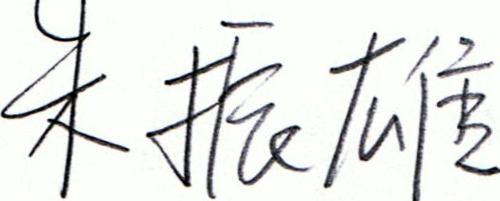 朱振雄